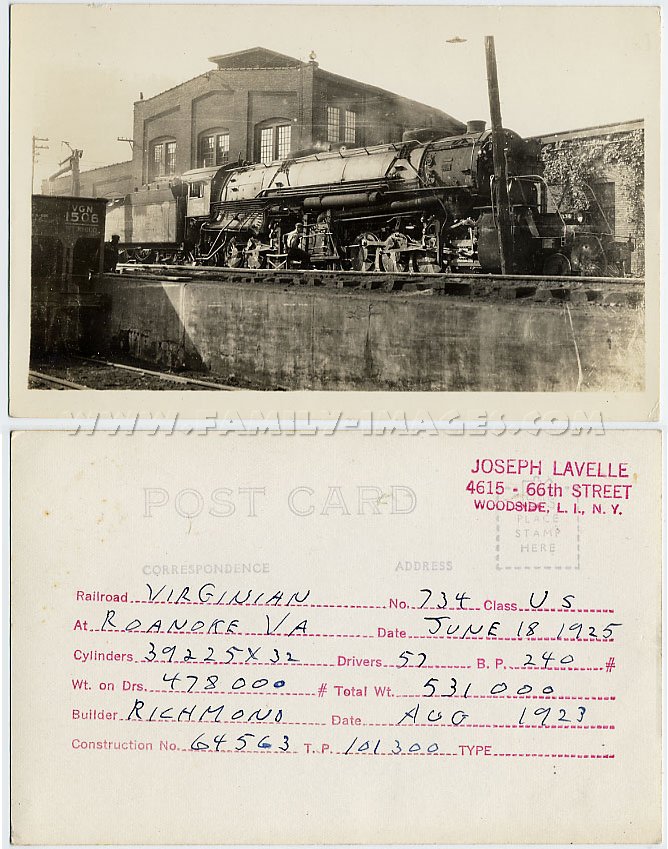 VGN
1506
WWW.FAMILY-IMAGES.COM
JOSEPH LAVELLE
4615 - 66th STREET
WOODSIDE, L. I., N. Y.
POST CARD
PLACE
STAMP
HERE
CORRESPONDENCE
ADDRESS
Railroad VIRGINIAN No. 734 Class US
At ROANOKE VA Date JUNE 18 1925
Cylinders 39&25X32 Drivers 57 B. P. 240 #
Wt. on Drs. 478000 # Total Wt. 531000
Builder RICHMOND Date AUG 1923
Construction No. 64563 T. P. 101300 TYPE